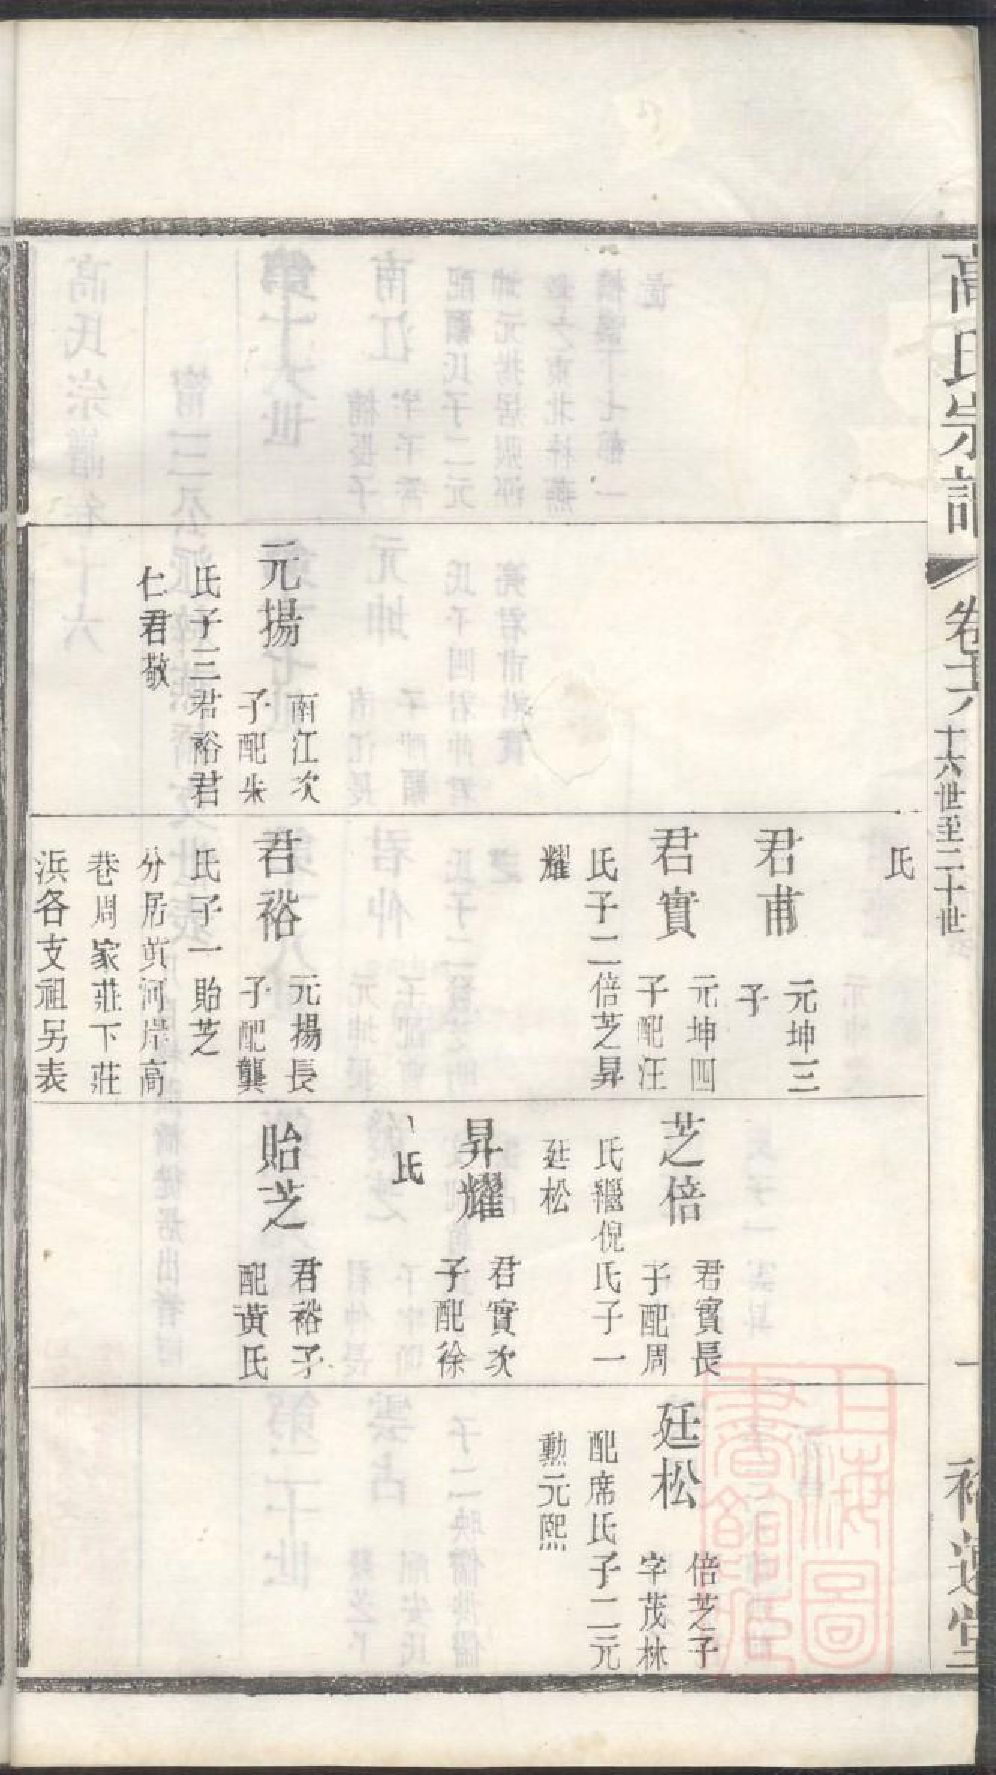 高氏宗譜
卷十六
十六世至二十世
一
元揚
南江次
子配朱
氏子三君裕君
仁君敬
氏
君甫
元坤三
子
君實
元坤四
子配汪
氏子二倍芝昇
耀
君裕
元揚長
子配龔
氏子一貽芝
分居黃河岸高
巷周家莊下莊
浜各支祖另表
芝倍
君實長
子配周
氏繼倪氏子一
廷松
昇耀
君實次
子配徐
氏
貽芝
君裕子
配黃氏
廷松
倍芝子
字茂林
配席氏子二元
勳元熙
上海圖
書館藏